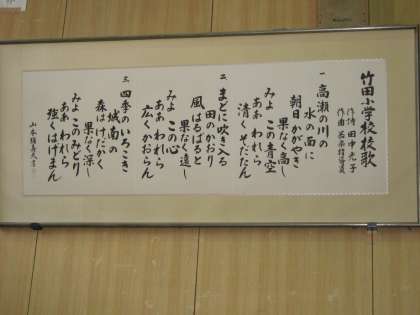 竹田小学校校歌
作詩 田中允子
作曲
一 高瀬の川の
水の面に
朝日かがやき
果なく高し
みよ この青空
ああ われら
清く そだたん
二 まどに吹き入る
田のかおり
風はるばると
果なく遠し
みよ この心
ああ われら
広く かおらん
三 四季のいろこき
城南の
森は けだかく
果なく深し
みよ このみどり
ああ われら
強く はげまん